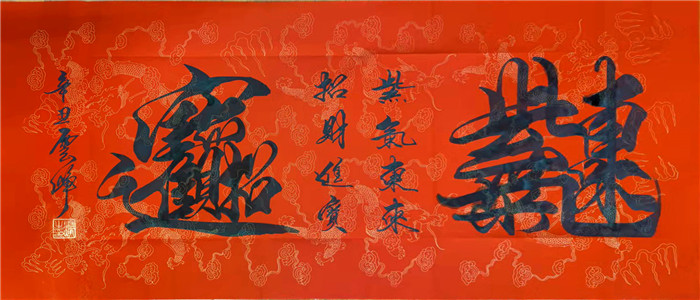 紫氣東來
招財進寶
辛丑雲